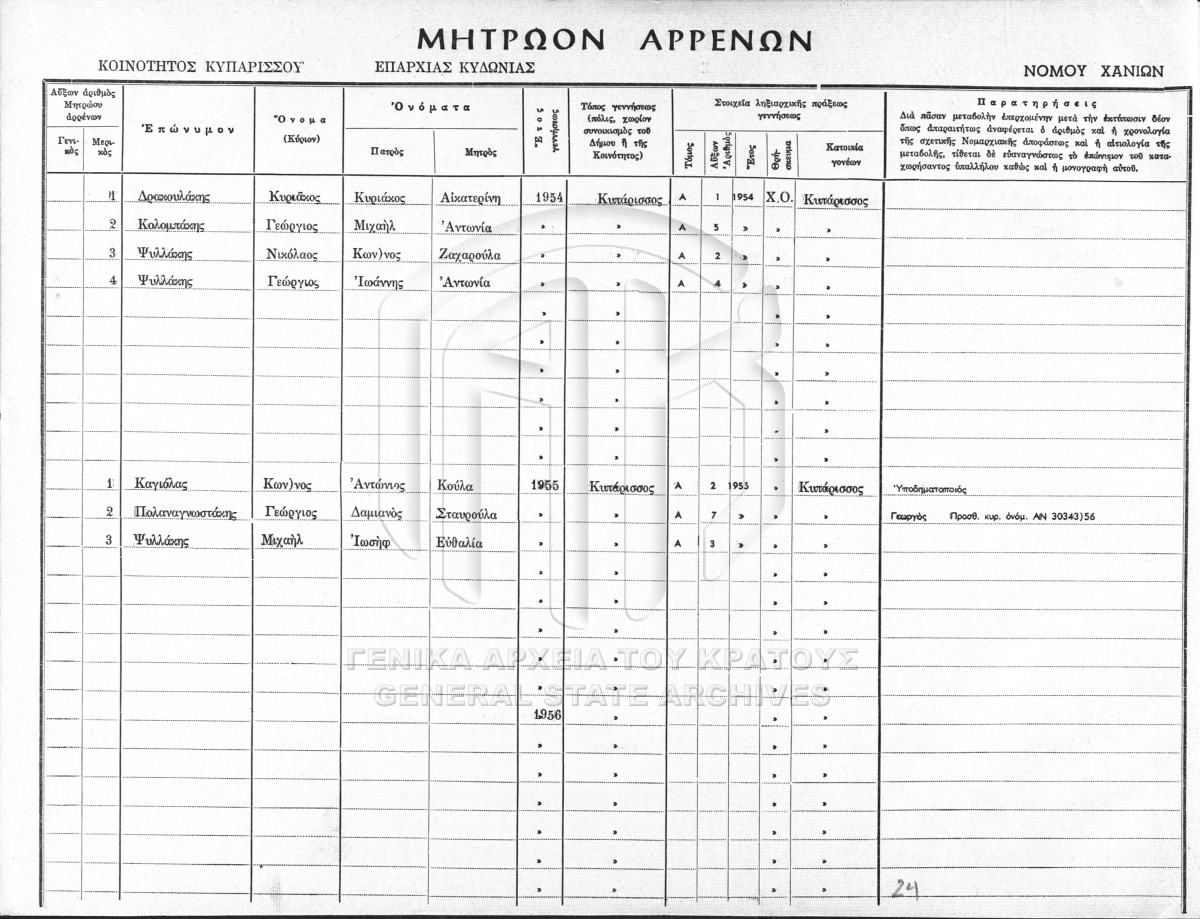 ΜΗΤΡΩΟΝ ΑΡΡΕΝΩΝ
ΚΟΙΝΟΤΗΤΟΣ ΚΥΠΑΡΙΣΣΟΥ ΕΠΑΡΧΙΑΣ ΚΥΔΩΝΙΑΣ ΝΟΜΟΥ ΧΑΝΙΩΝ
Αὔξων ἀριθμὸς Μητρώου ἀρρένων
Γενικὸς Μερικὸς
Ἐπώνυμον
Ὄνομα (Κύριον)
Ὀνόματα
Πατρὸς Μητρὸς
Ἔτος γεννήσεως
Τόπος γεννήσεως (πόλις, χωρίον συνοικισμὸς τοῦ Δήμου ἢ τῆς Κοινότητος)
Στοιχεῖα ληξιαρχικῆς πράξεως γεννήσεως
Τόμος Αὔξων Ἀριθμὸς Ἔτος Θρήσκευμα Κατοικία γονέων
Παρατηρήσεις
Διὰ πᾶσαν μεταβολὴν ἐπερχομένην μετὰ τὴν ἐκτύπωσιν δέον
ὅπως ἀπαραιτήτως ἀναφέρεται ὁ ἀριθμὸς καὶ ἡ χρονολογία
τῆς σχετικῆς Νομαρχιακῆς ἀποφάσεως καὶ ἡ αἰτιολογία τῆς
μεταβολῆς, τίθεται δὲ εὐαναγνώστως τὸ ἐπώνυμον τοῦ κατα-
χωρήσαντος ὑπαλλήλου καθὼς καὶ ἡ μονογραφὴ αὐτοῦ.
1 Δρακουλάκης Κυριᾶκος Κυριάκος Αἰκατερίνη 1954 Κυπάρισσος Α 1 1954 Χ.Ο. Κυπάρισσος
2 Κολομπάκης Γεώργιος Μιχαὴλ Ἀντωνία » » Α 5 » » »
3 Ψυλλάκης Νικόλαος Κων)νος Ζαχαρούλα » » Α 2 » » »
4 Ψυλλάκης Γεώργιος Ἰωάννης Ἀντωνία » » Α 4 » » »
» » » »
» » » »
» » » »
» » » »
» » » »
» » » »
1 Καγιόλας Κων)νος Ἀντώνιος Κούλα 1955 Κυπάρισσος Α 2 1955 » Κυπάρισσος Ὑποδηματοποιός
2 Πολαναγνωστάκης Γεώργιος Δαμιανὸς Σταυρούλα » » Α 7 » » » Γεωργὸς Προσθ. κυρ. ὀνόμ. ΑΝ 30343)56
3 Ψυλλάκης Μιχαὴλ Ἰωσὴφ Εὐθαλία » » Α 3 » » »
» » » »
» » » »
» » » »
» » » »
» » » »
1956 » » »
» » » »
» » » »
» » » »
» » » »
» » » »
» » » »
ΓΕΝΙΚΑ ΑΡΧΕΙΑ ΤΟΥ ΚΡΑΤΟΥΣ
GENERAL STATE ARCHIVES
24